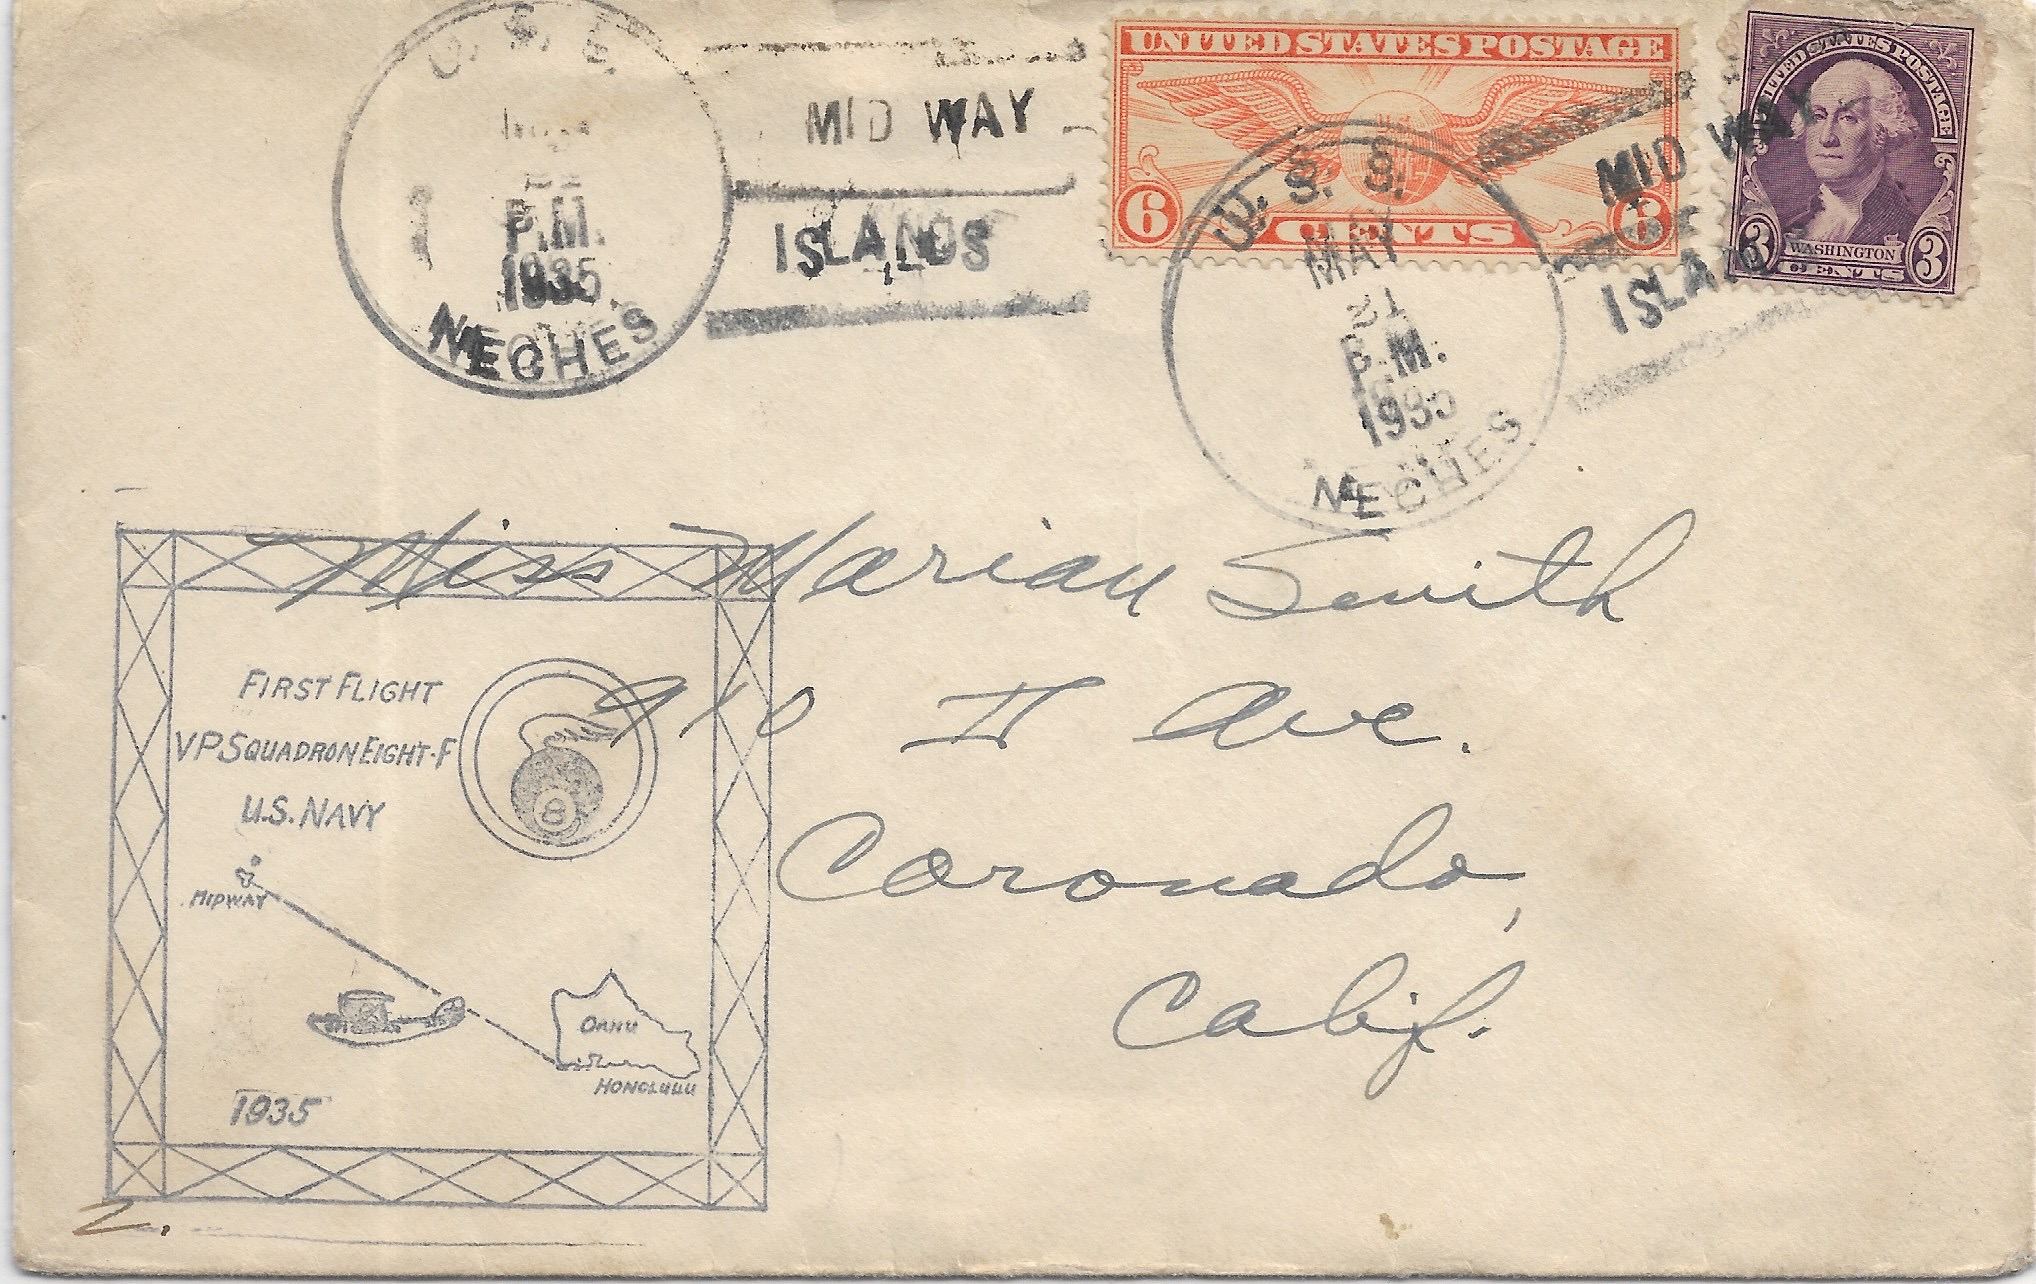 U. S. S.
P.M.
1935
NECHES
MID WAY
ISLANDS
UNITED STATES POSTAGE
6 6
CENTS
U. S. S.
MAY
21
P.M.
1935
NECHES
MID WAY
ISLAND
UNITED STATES POSTAGE
WASHINGTON
3 3
CENTS
Miss Marian Smith
910 H Ave.
Coronado,
Calif.
FIRST FLIGHT
VP SQUADRON EIGHT-F
U.S. NAVY
8
MIDWAY
OAHU
HONOLULU
1935
2.